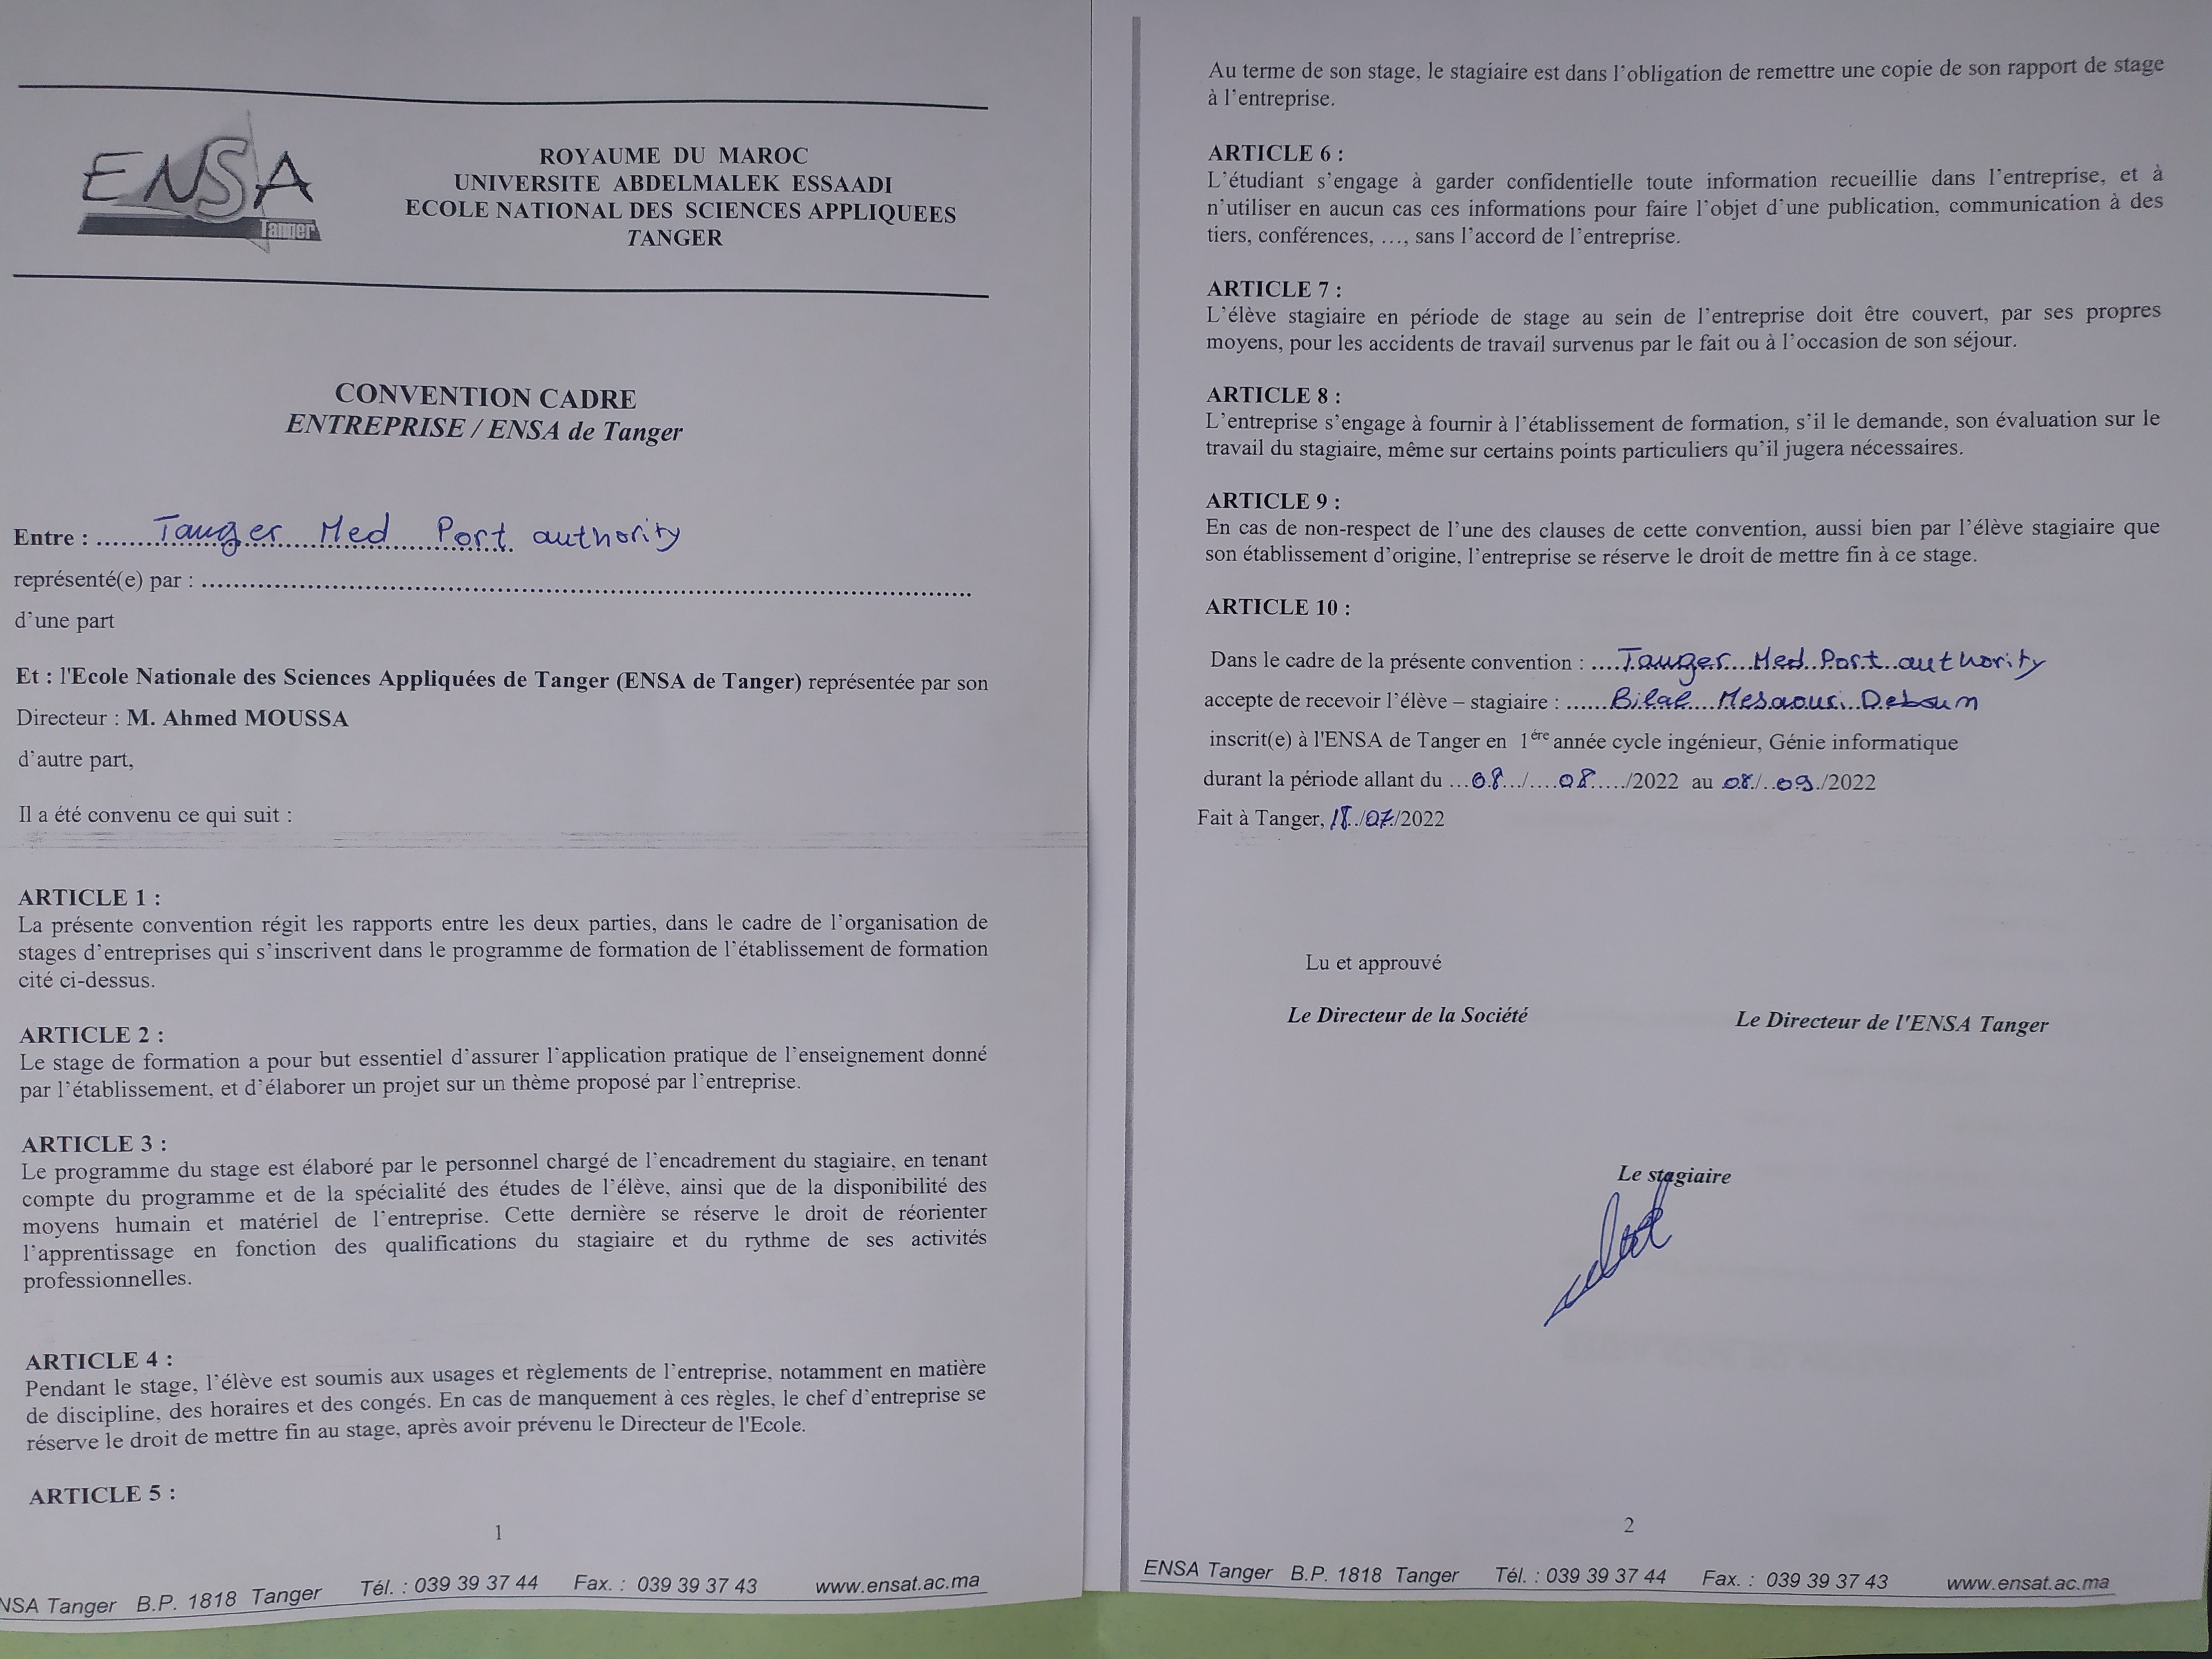 ENSA
Tanger
ROYAUME DU MAROC
UNIVERSITE ABDELMALEK ESSAADI
ECOLE NATIONAL DES SCIENCES APPLIQUEES
TANGER
CONVENTION CADRE
ENTREPRISE / ENSA de Tanger
Entre : Tanger Med Port authority
représenté(e) par : ...
d'une part
Et : l'Ecole Nationale des Sciences Appliquées de Tanger (ENSA de Tanger) représentée par son
Directeur : M. Ahmed MOUSSA
d'autre part,
Il a été convenu ce qui suit :
ARTICLE 1 :
La présente convention régit les rapports entre les deux parties, dans le cadre de l'organisation de
stages d'entreprises qui s'inscrivent dans le programme de formation de l'établissement de formation
cité ci-dessus.
ARTICLE 2 :
Le stage de formation a pour but essentiel d'assurer l'application pratique de l'enseignement donné
par l'établissement, et d'élaborer un projet sur un thème proposé par l'entreprise.
ARTICLE 3 :
Le programme du stage est élaboré par le personnel chargé de l'encadrement du stagiaire, en tenant
compte du programme et de la spécialité des études de l'élève, ainsi que de la disponibilité des
moyens humain et matériel de l'entreprise. Cette dernière se réserve le droit de réorienter
l'apprentissage en fonction des qualifications du stagiaire et du rythme de ses activités
professionnelles.
ARTICLE 4 :
Pendant le stage, l'élève est soumis aux usages et règlements de l'entreprise, notamment en matière
de discipline, des horaires et des congés. En cas de manquement à ces règles, le chef d'entreprise se
réserve le droit de mettre fin au stage, après avoir prévenu le Directeur de l'Ecole.
ARTICLE 5 :
1
ENSA Tanger B.P. 1818 Tanger Tél. : 039 39 37 44 Fax. : 039 39 37 43 www.ensat.ac.ma
Au terme de son stage, le stagiaire est dans l'obligation de remettre une copie de son rapport de stage
à l'entreprise.
ARTICLE 6 :
L'étudiant s'engage à garder confidentielle toute information recueillie dans l'entreprise, et à
n'utiliser en aucun cas ces informations pour faire l'objet d'une publication, communication à des
tiers, conférences, ..., sans l'accord de l'entreprise.
ARTICLE 7 :
L'élève stagiaire en période de stage au sein de l'entreprise doit être couvert, par ses propres
moyens, pour les accidents de travail survenus par le fait ou à l'occasion de son séjour.
ARTICLE 8 :
L'entreprise s'engage à fournir à l'établissement de formation, s'il le demande, son évaluation sur le
travail du stagiaire, même sur certains points particuliers qu'il jugera nécessaires.
ARTICLE 9 :
En cas de non-respect de l'une des clauses de cette convention, aussi bien par l'élève stagiaire que
son établissement d'origine, l'entreprise se réserve le droit de mettre fin à ce stage.
ARTICLE 10 :
Dans le cadre de la présente convention : Tanger Med Port authority
accepte de recevoir l'élève – stagiaire : Bilal Mesaousi
inscrit(e) à l'ENSA de Tanger en 1ère année cycle ingénieur, Génie informatique
durant la période allant du 08/08/2022 au 08/09/2022
Fait à Tanger, 18/07/2022
Lu et approuvé
Le Directeur de la Société Le Directeur de l'ENSA Tanger
Le stagiaire
2
ENSA Tanger B.P. 1818 Tanger Tél. : 039 39 37 44 Fax. : 039 39 37 43 www.ensat.ac.ma